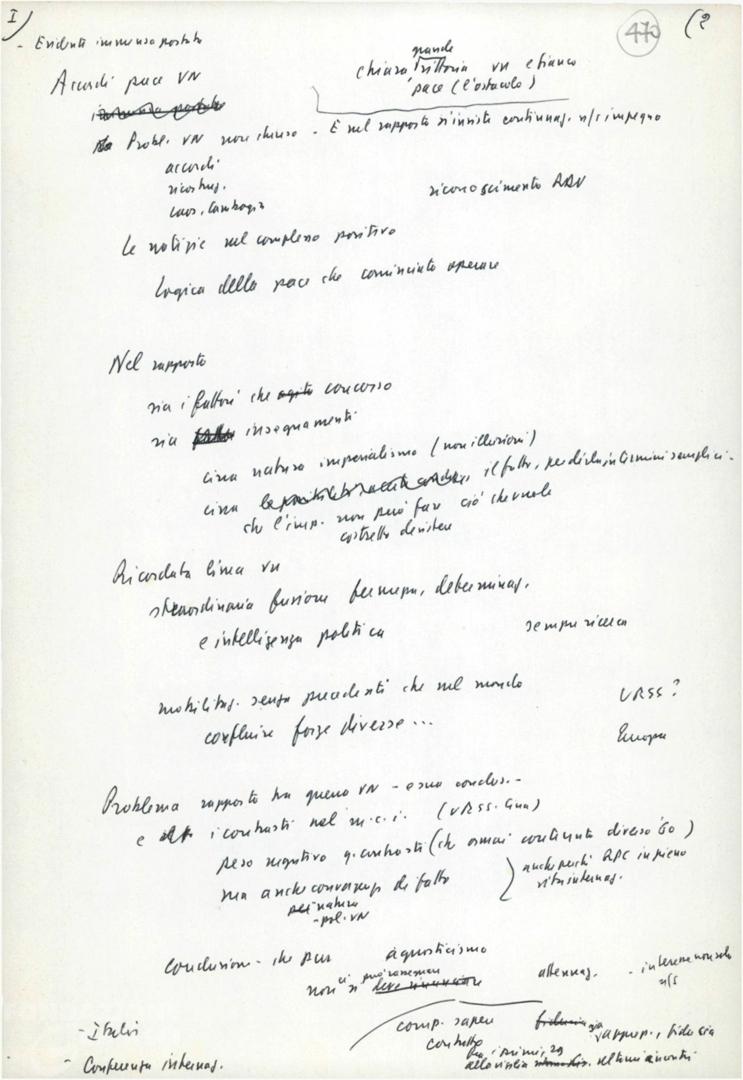 I)
470
(2
- Evidente immensa portata
Accordi pace VN
chiara grande vittoria VN e fianco
pace (l'ostacolo)
Probl. VN non chiuso - E nel rapporto si insiste continuaz. n/s impegno
accordi
ricostruz.
Laos, Cambogia
riconoscimento RDV
Le notizie nel complesso positive
Logica della pace che cominciato operare
Nel rapporto
sia i fattori che agito concorso
sia insegnamenti
circa natura imperialismo (non illusioni)
circa il fatto, per dirla in termini semplici -
che l'imp. non può fare ciò che vuole
costretto desistere
Ricordata linea VN
straordinaria fusione fermezza, determinaz.
e intelligenza politica
sempre ricerca
mobilitaz. senza precedenti che nel mondo
confluire forze diverse ...
URSS?
Europa
Problema rapporto tra guerra VN - e sua conclus. -
e i contrasti nel m.c.i. (URSS-Cina)
peso negativo q. contrasti (che ormai contenuto diverso '60)
ma anche convergenze di fatto
anche perché RPC in pieno
vita internaz.
per natura
- pol. VN
Conclusione - che pur agnosticismo
non ci si può rassegnare
attenuaz. - interesse non solo
n/s
- Italia
comp. sapere
contatto
fiducia
- Conferenza internaz.
alla vigilia ultimi incontri